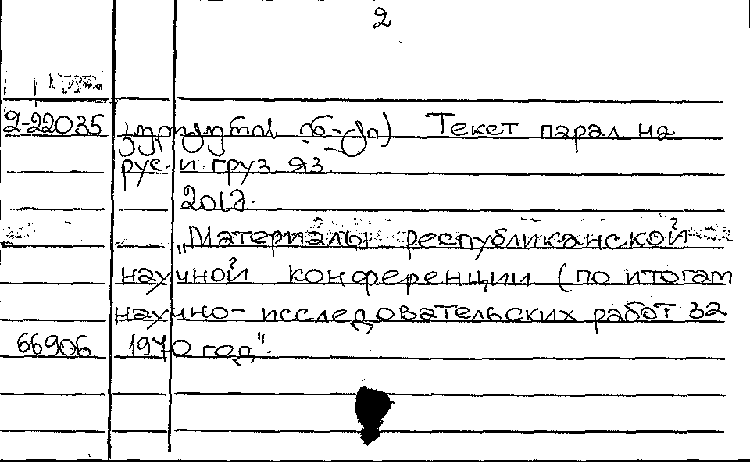 2
2-22035 Текст парал на
рус. и груз яз.
"Материалы республиканской
научной конференции (по итогам
научно-исследовательских работ за
66906 1970 год".